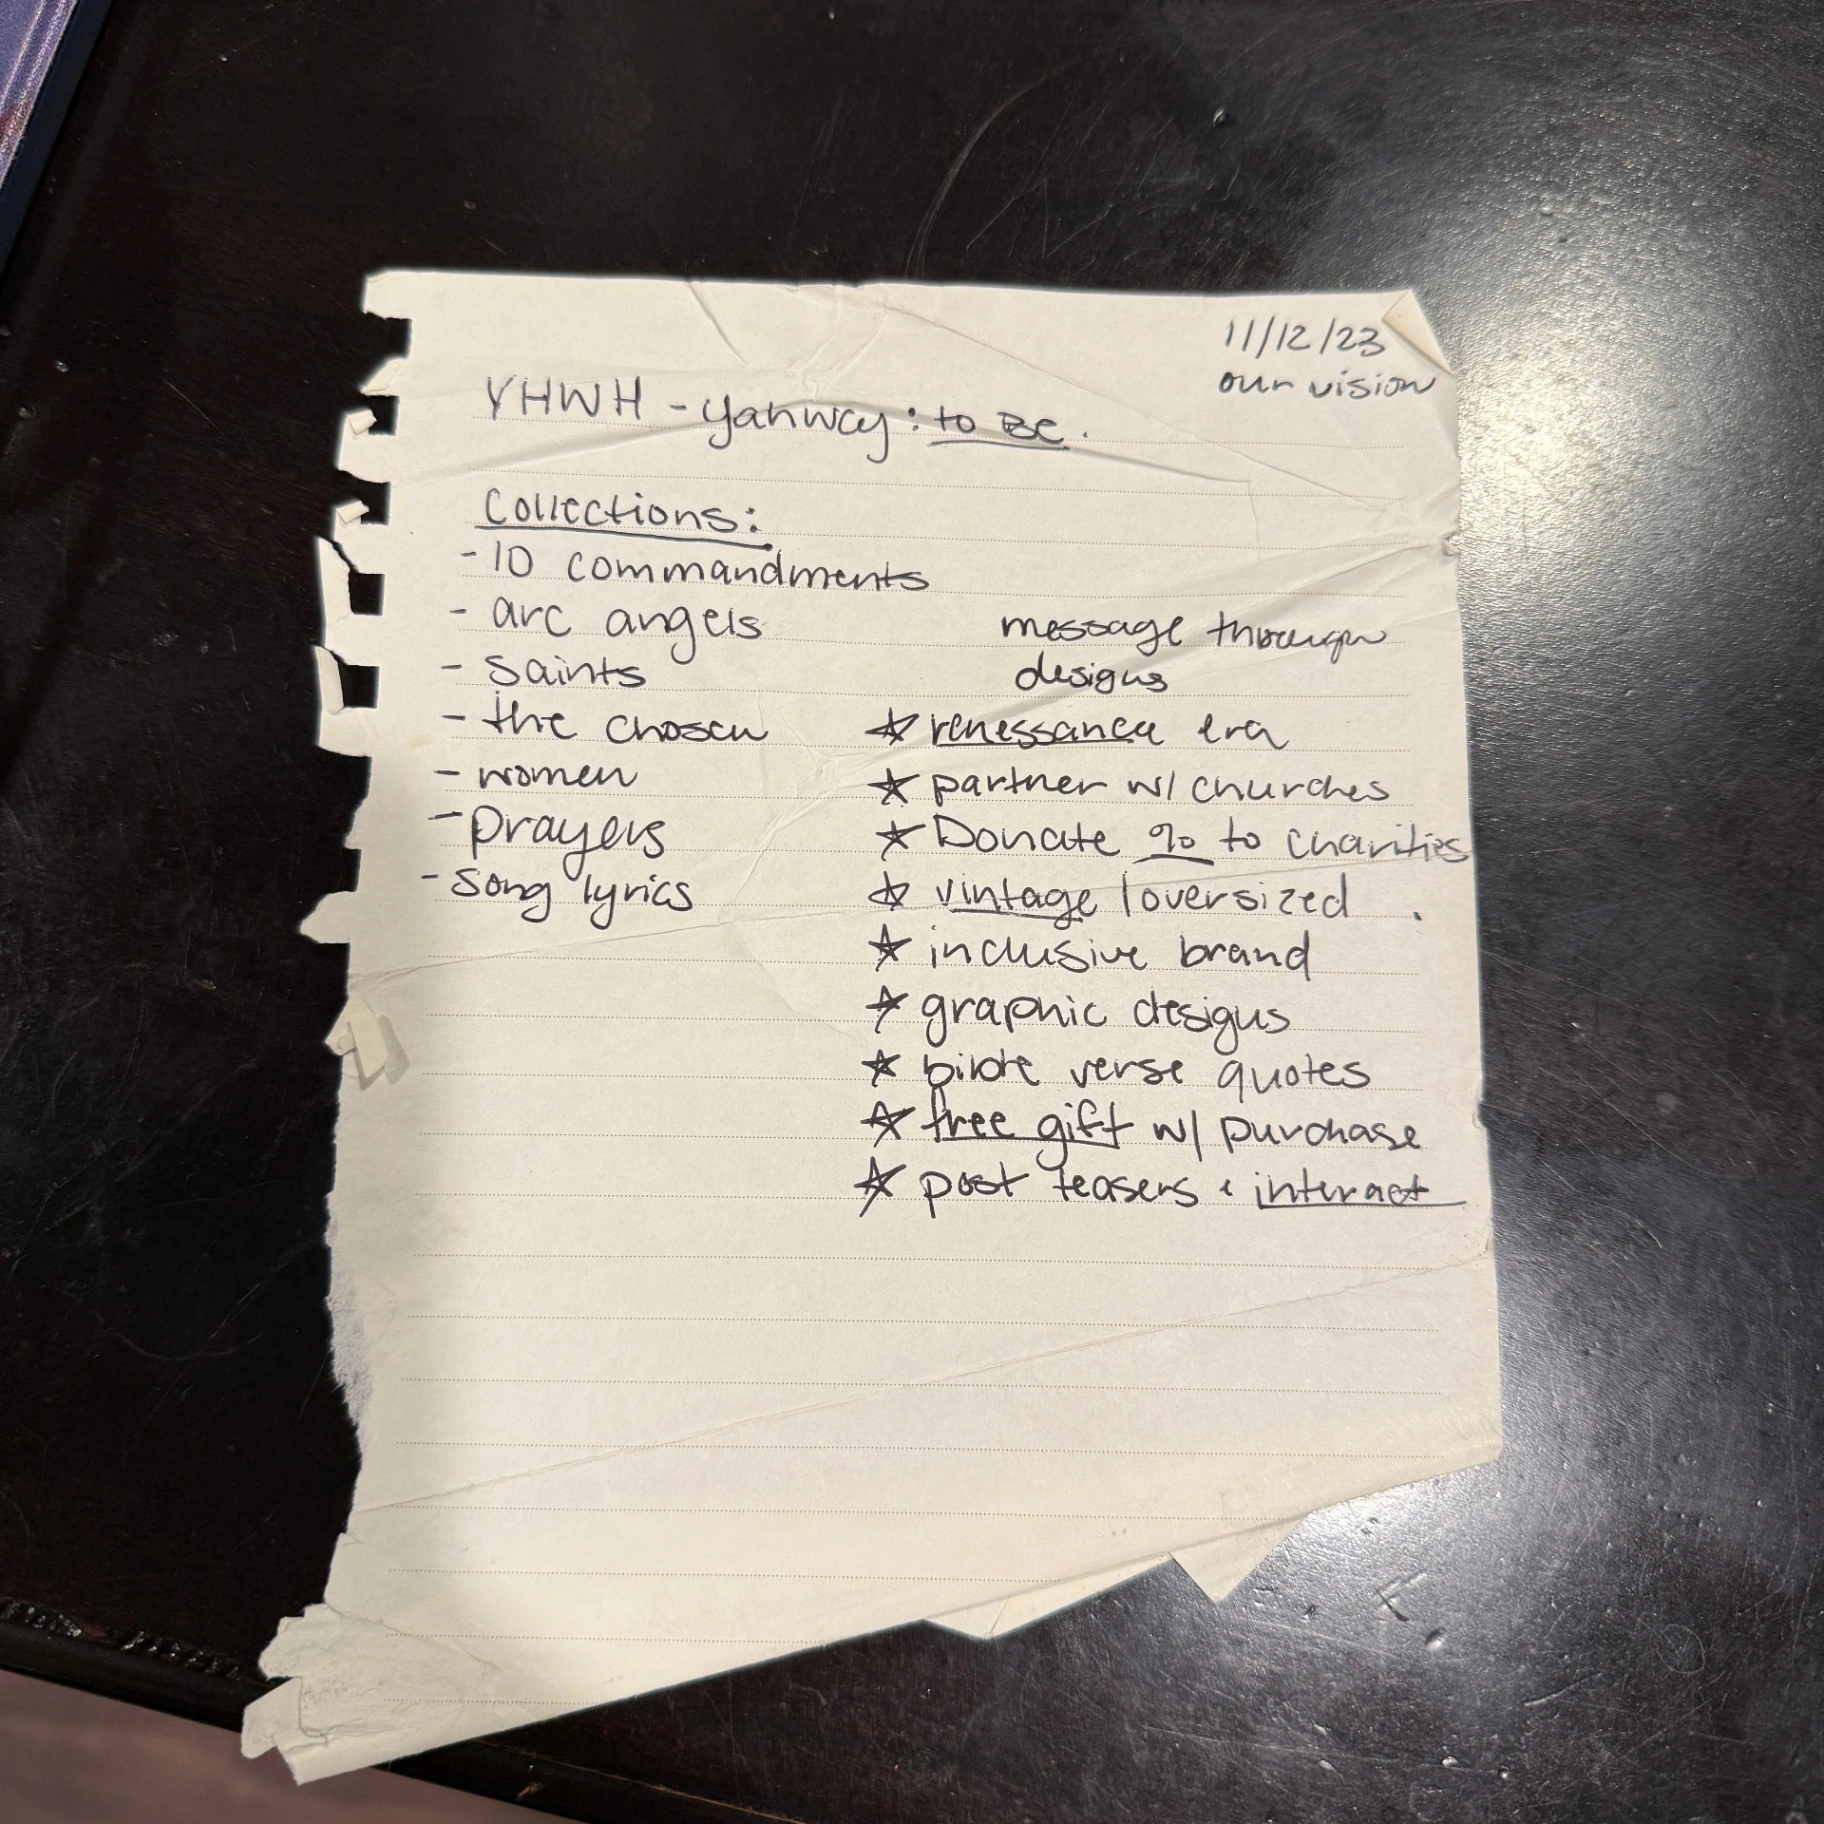 11/12/23
our vision
YHWH - yahwey: to BE.
Collections:
- 10 commandments
- arc angels
- saints
- the chosen
- women
- prayers
- song lyrics
message through
designs
☆ renessance era
☆ partner w/ churches
☆ Donate % to charities
☆ vintage / oversized
☆ inclusive brand
☆ graphic designs
☆ bible verse quotes
☆ free gift w/ purchase
☆ post teasers & interact